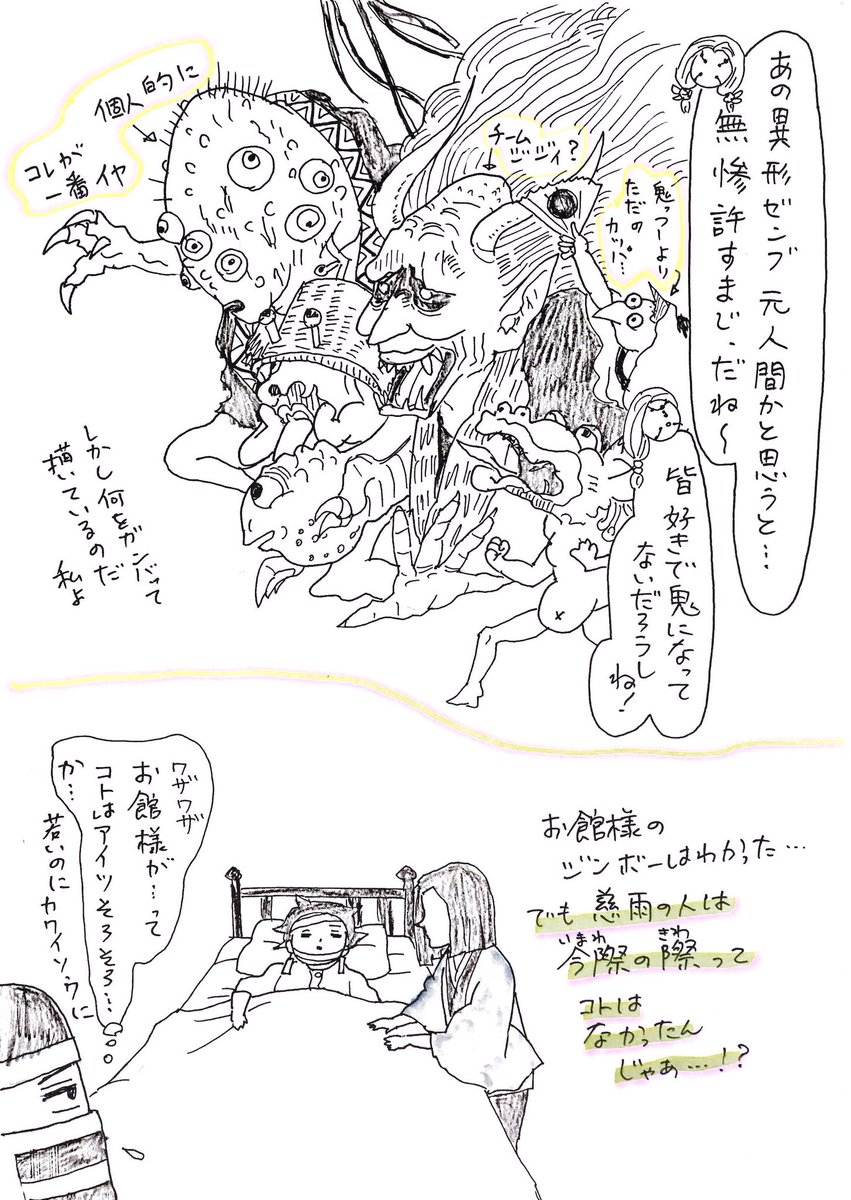 あの異形ゼンブ元人間かと思うと…
無惨許すまじ、だね〜
鬼っつーより
ただの
カッパ…
チーム
ジジィ?
個人的に
コレが
一番イヤ
皆好きで鬼になって
ないだろうし
ね!
しかし何をガンバって
描いているのだ
私よ
お館様の
ジンボーはわかった…
でも慈雨の人は
いまわ きわ
今際の際って
コトは
なかったん
じゃあ…!?
ワザワザ
お館様が…って
コトはアイツそろそろ…
か…
若いのにカワイソウに